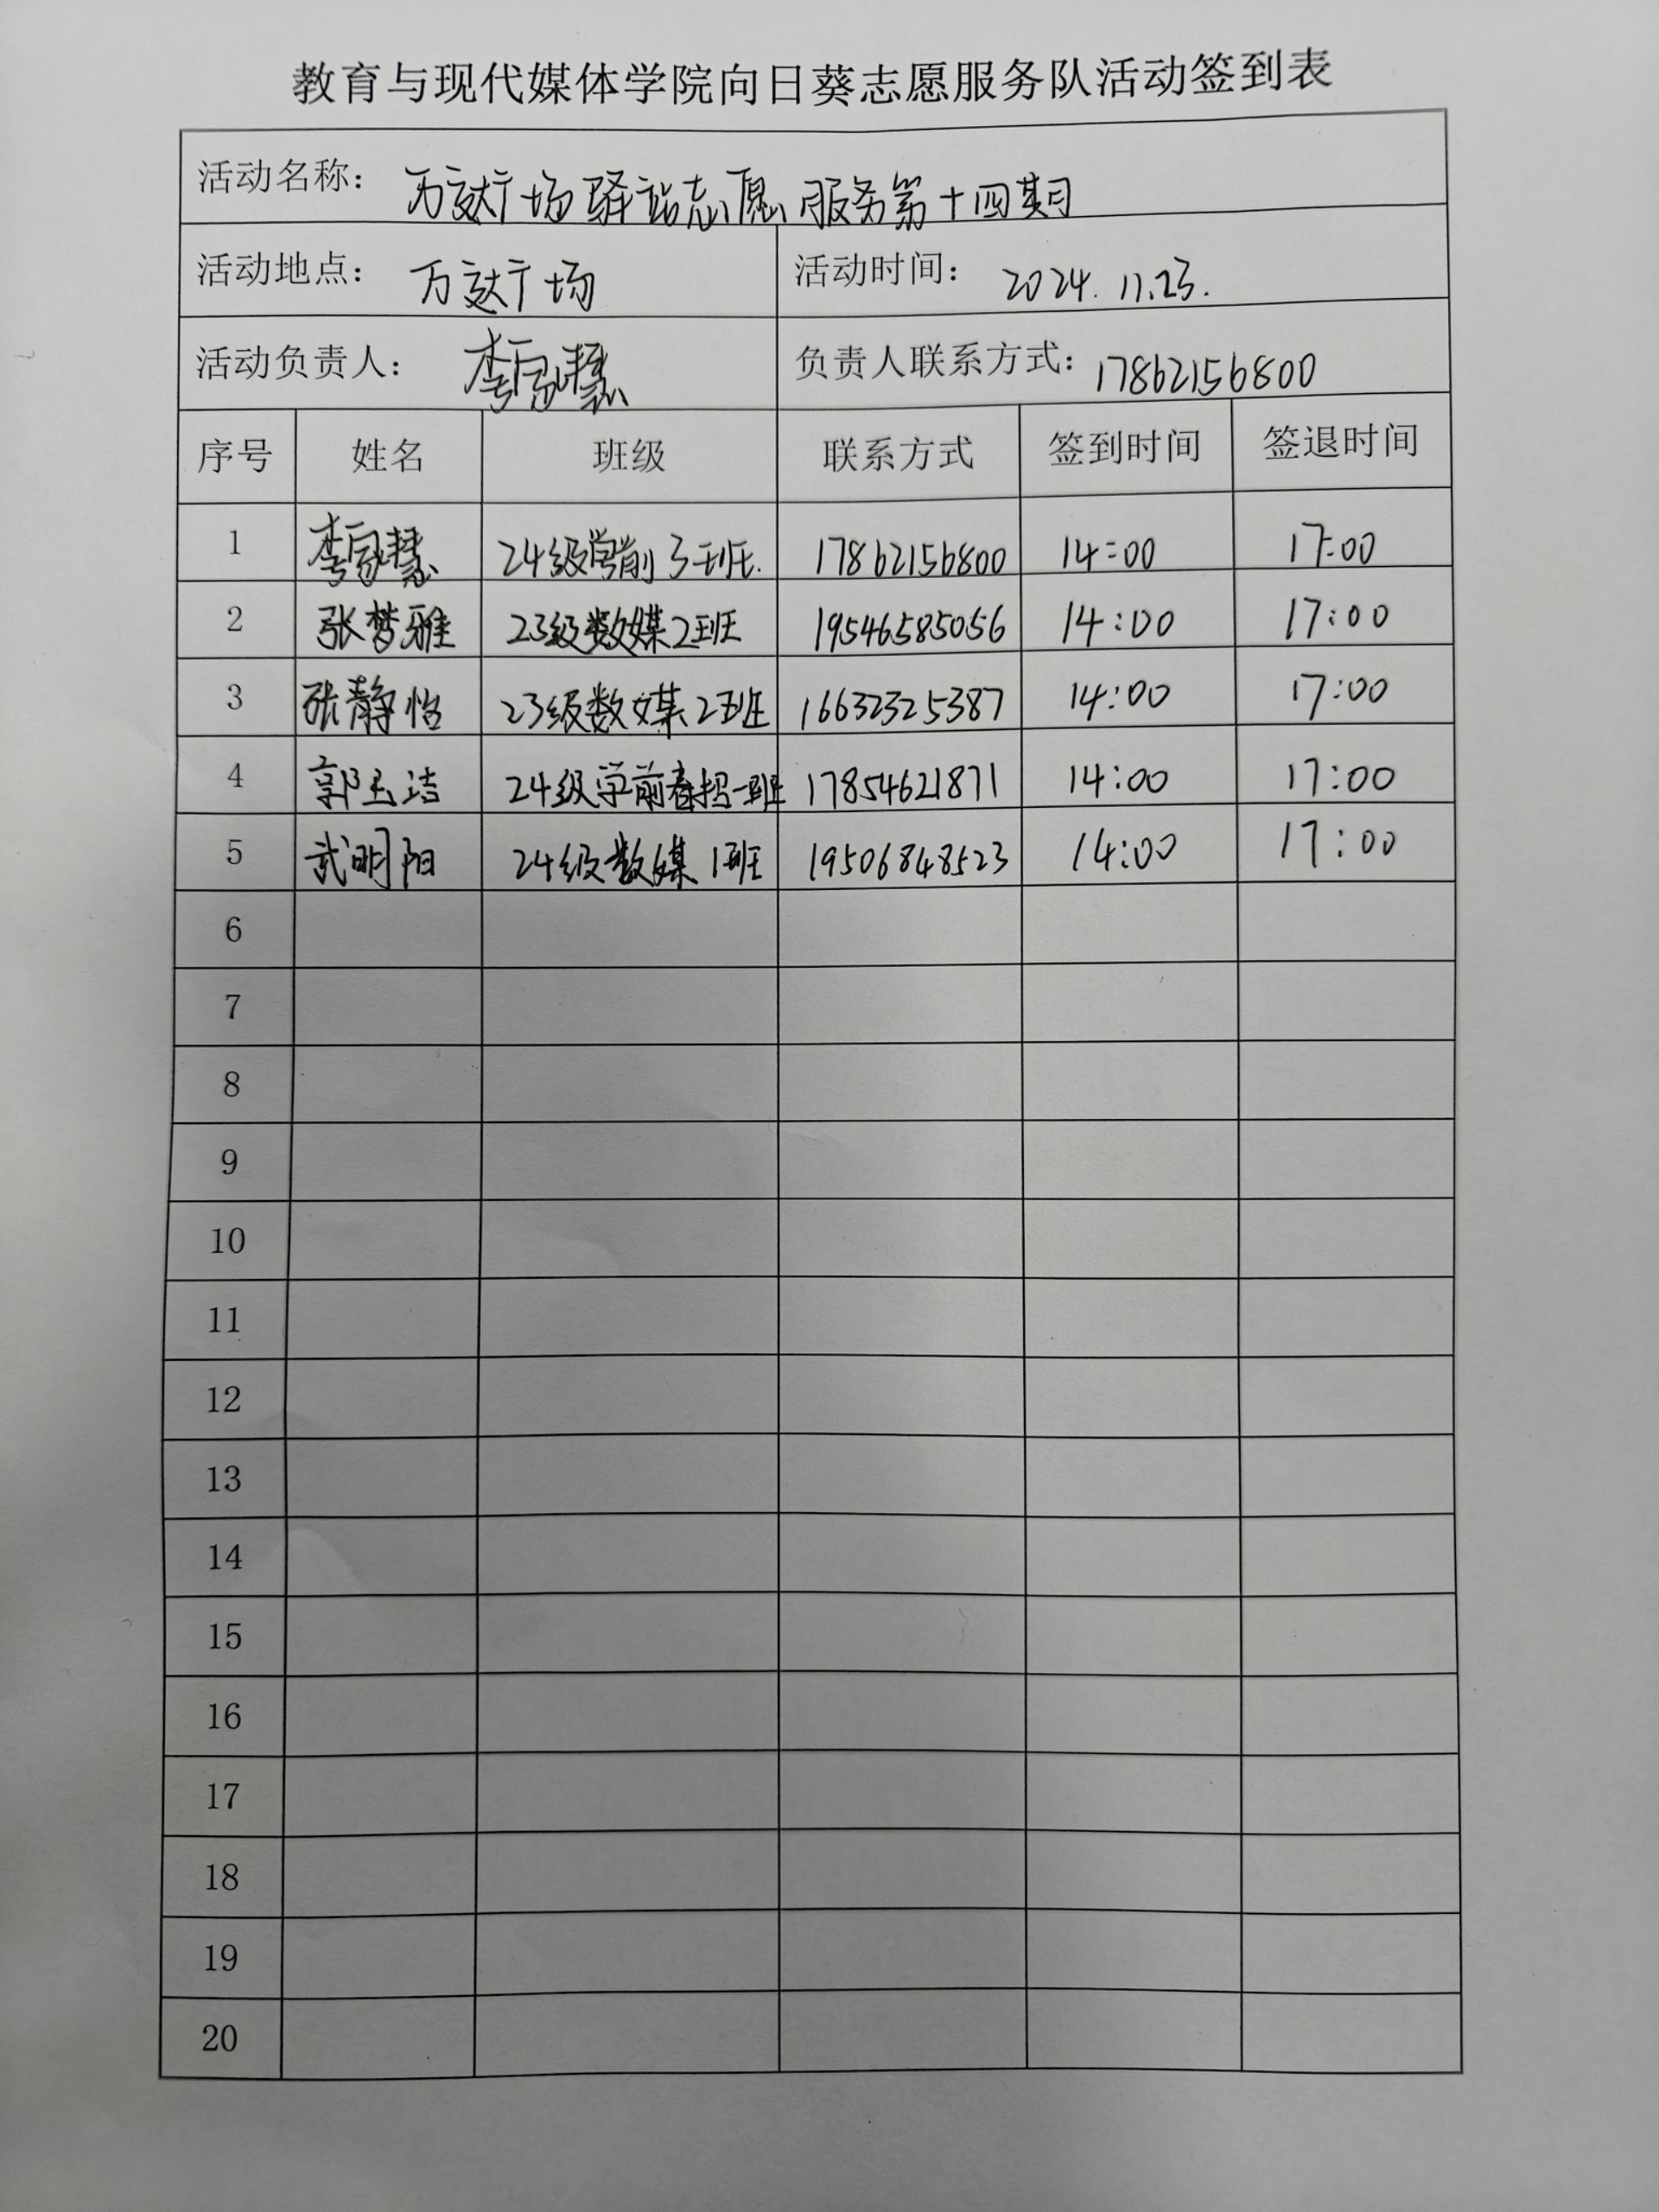 教育与现代媒体学院向日葵志愿服务队活动签到表
活动名称： 万达广场驿站志愿服务第十四期
活动地点： 万达广场 活动时间： 2024.11.23.
活动负责人： 李慧 负责人联系方式：17862156800
序号 姓名 班级 联系方式 签到时间 签退时间
1 李慧 24级学前3班. 17862156800 14:00 17:00
2 张梦雅 23级数媒2班 19546585056 14:00 17:00
3 张静怡 23级数媒2班 16632325387 14:00 17:00
4 郭玉洁 24级学前春招一班 17854621871 14:00 17:00
5 武明阳 24级数媒1班 19506848523 14:00 17:00
6
7
8
9
10
11
12
13
14
15
16
17
18
19
20